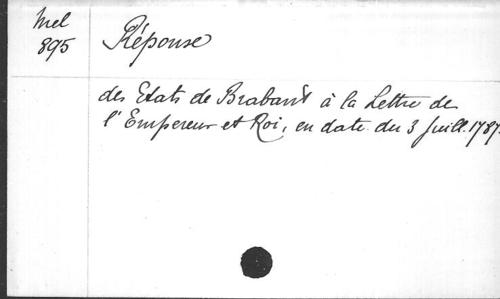 Mel
895
Réponse
des Etats de Brabant à la Lettre de
l'Empereur et Roi, en date du 3 Juill. 1787.